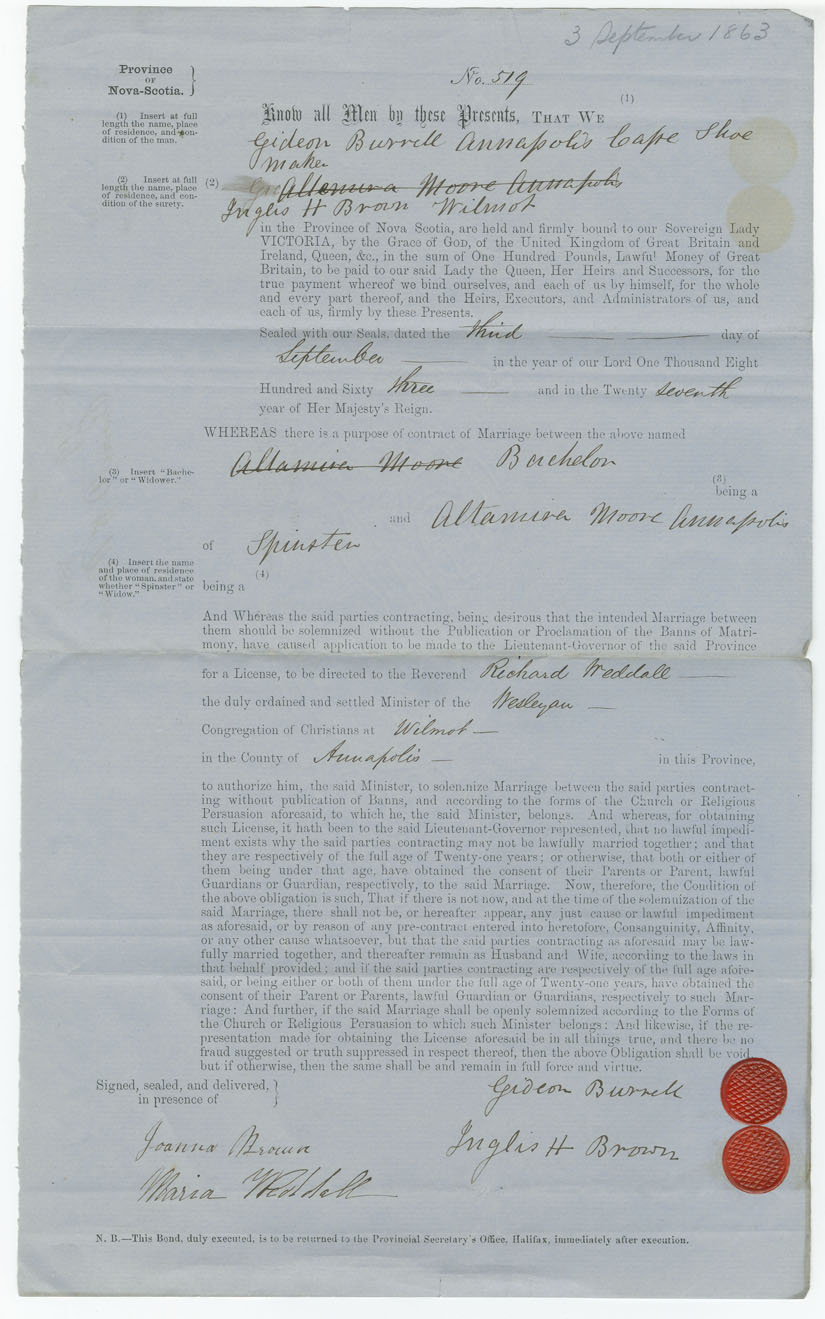 3 September 1863
Province
OF
Nova-Scotia.
No. 519
(1)
(1) Insert at full
length the name, place
of residence, and con-
dition of the man.
Know all Men by these Presents, THAT WE
Gideon Burrell Annapolis Cape Shoe
maker
(2) Insert at full
length the name, place
of residence, and con-
dition of the surety.
(2)
Altamira Moore Annapolis
Inglis H Brown Wilmot
in the Province of Nova Scotia, are held and firmly bound to our Sovereign Lady
VICTORIA, by the Grace of GOD, of the United Kingdom of Great Britain and
Ireland, Queen, &c., in the sum of One Hundred Pounds, Lawful Money of Great
Britain, to be paid to our said Lady the Queen, Her Heirs and Successors, for the
true payment whereof we bind ourselves, and each of us by himself, for the whole
and every part thereof, and the Heirs, Executors, and Administrators of us, and
each of us, firmly by these Presents.
Sealed with our Seals, dated the third day of
September in the year of our Lord One Thousand Eight
Hundred and Sixty three and in the Twenty seventh
year of Her Majesty's Reign.
WHEREAS there is a purpose of contract of Marriage between the above named
Altamira Moore Bachelor
(3) Insert "Bache-
lor" or "Widower."
(3)
being a
and Altamira Moore Annapolis
of Spinster
(4) Insert the name
and place of residence
of the woman, and state
whether "Spinster" or
"Widow."
(4)
being a
And Whereas the said parties contracting, being desirous that the intended Marriage between
them should be solemnized without the Publication or Proclamation of the Banns of Matri-
mony, have caused application to be made to the Lieutenant-Governor of the said Province
for a License, to be directed to the Reverend Richard Weddall
the duly ordained and settled Minister of the Wesleyan
Congregation of Christians at Wilmot
in the County of Annapolis in this Province,
to authorize him, the said Minister, to solemnize Marriage between the said parties contract-
ing without publication of Banns, and according to the forms of the Church or Religious
Persuasion aforesaid, to which he, the said Minister, belongs. And whereas, for obtaining
such License, it hath been to the said Lieutenant-Governor represented, that no lawful impedi-
ment exists why the said parties contracting may not be lawfully married together; and that
they are respectively of the full age of Twenty-one years; or otherwise, that both or either of
them being under that age, have obtained the consent of their Parents or Parent, lawful
Guardians or Guardian, respectively, to the said Marriage. Now, therefore, the Condition of
the above obligation is such, That if there is not now, and at the time of the solemnization of the
said Marriage, there shall not be, or hereafter appear, any just cause or lawful impediment
as aforesaid, or by reason of any pre-contract entered into heretofore, Consanguinity, Affinity,
or any other cause whatsoever, but that the said parties contracting as aforesaid may be law-
fully married together, and thereafter remain as Husband and Wife, according to the laws in
that behalf provided; and if the said parties contracting are respectively of the full age afore-
said, or being either or both of them under the full age of Twenty-one years, have obtained the
consent of their Parent or Parents, lawful Guardian or Guardians, respectively to such Mar-
riage: And further, if the said Marriage shall be openly solemnized according to the Forms of
the Church or Religious Persuasion to which such Minister belongs: And likewise, if the re-
presentation made for obtaining the License aforesaid be in all things true, and there be no
fraud suggested or truth suppressed in respect thereof, then the above Obligation shall be void,
but if otherwise, then the same shall be and remain in full force and virtue.
Signed, sealed, and delivered,
in presence of
Gideon Burrell
Joanna Brown
Inglis H Brown
Maria Weddall
N. B.—This Bond, duly executed, is to be returned to the Provincial Secretary's Office, Halifax, immediately after execution.